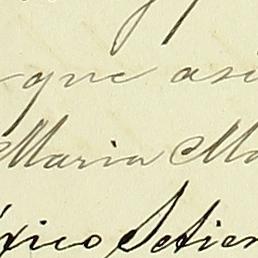 que asi
Maria Ma
xico Setiem